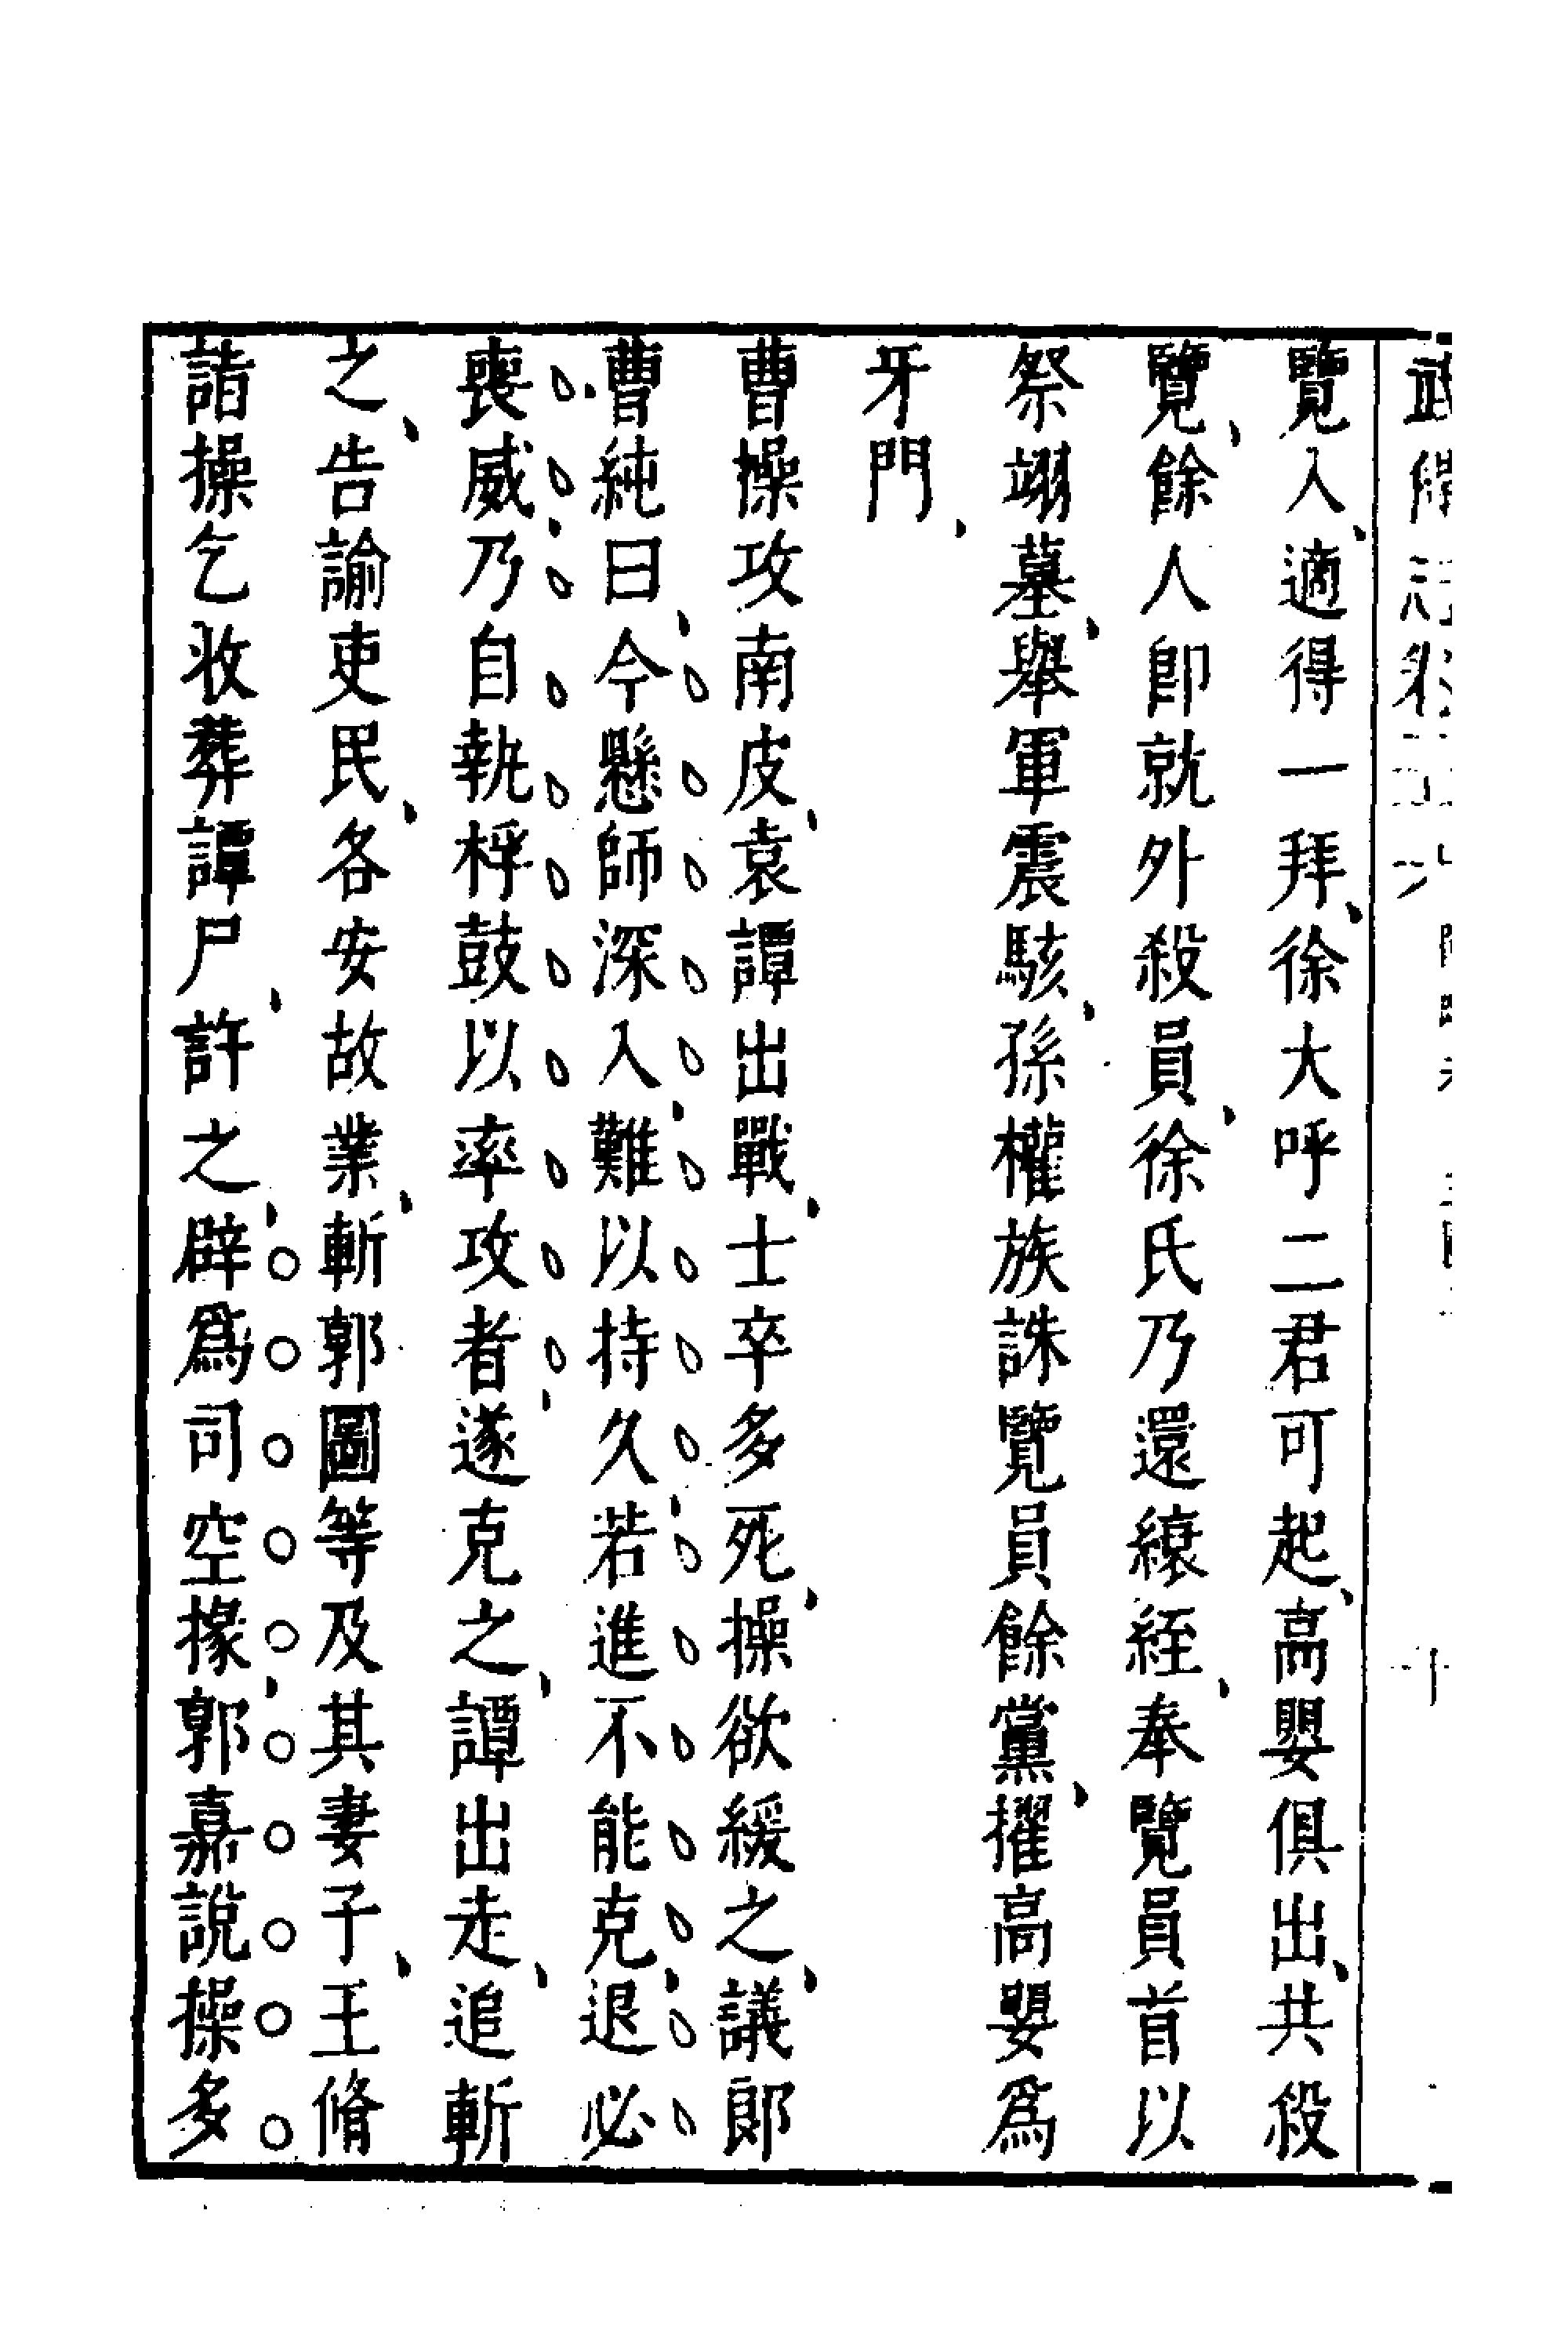 覽入適得一拜徐大呼二君可起高嬰俱出共殺
覽餘人卽就外殺員徐氏乃還縗絰奉覽員首以
祭翊墓舉軍震駭孫權族誅覽員餘黨擢高嬰爲
牙門
曹操攻南皮袁譚出戰士卒多死操欲緩之議郞
曹純曰今懸師深入難以持久若進不能克退必
喪威乃自執桴鼓以率攻者遂克之譚出走追斬
之告諭吏民各安故業斬郭圖等及其妻子王脩
詣操乞收葬譚尸許之辟爲司空掾郭嘉說操多